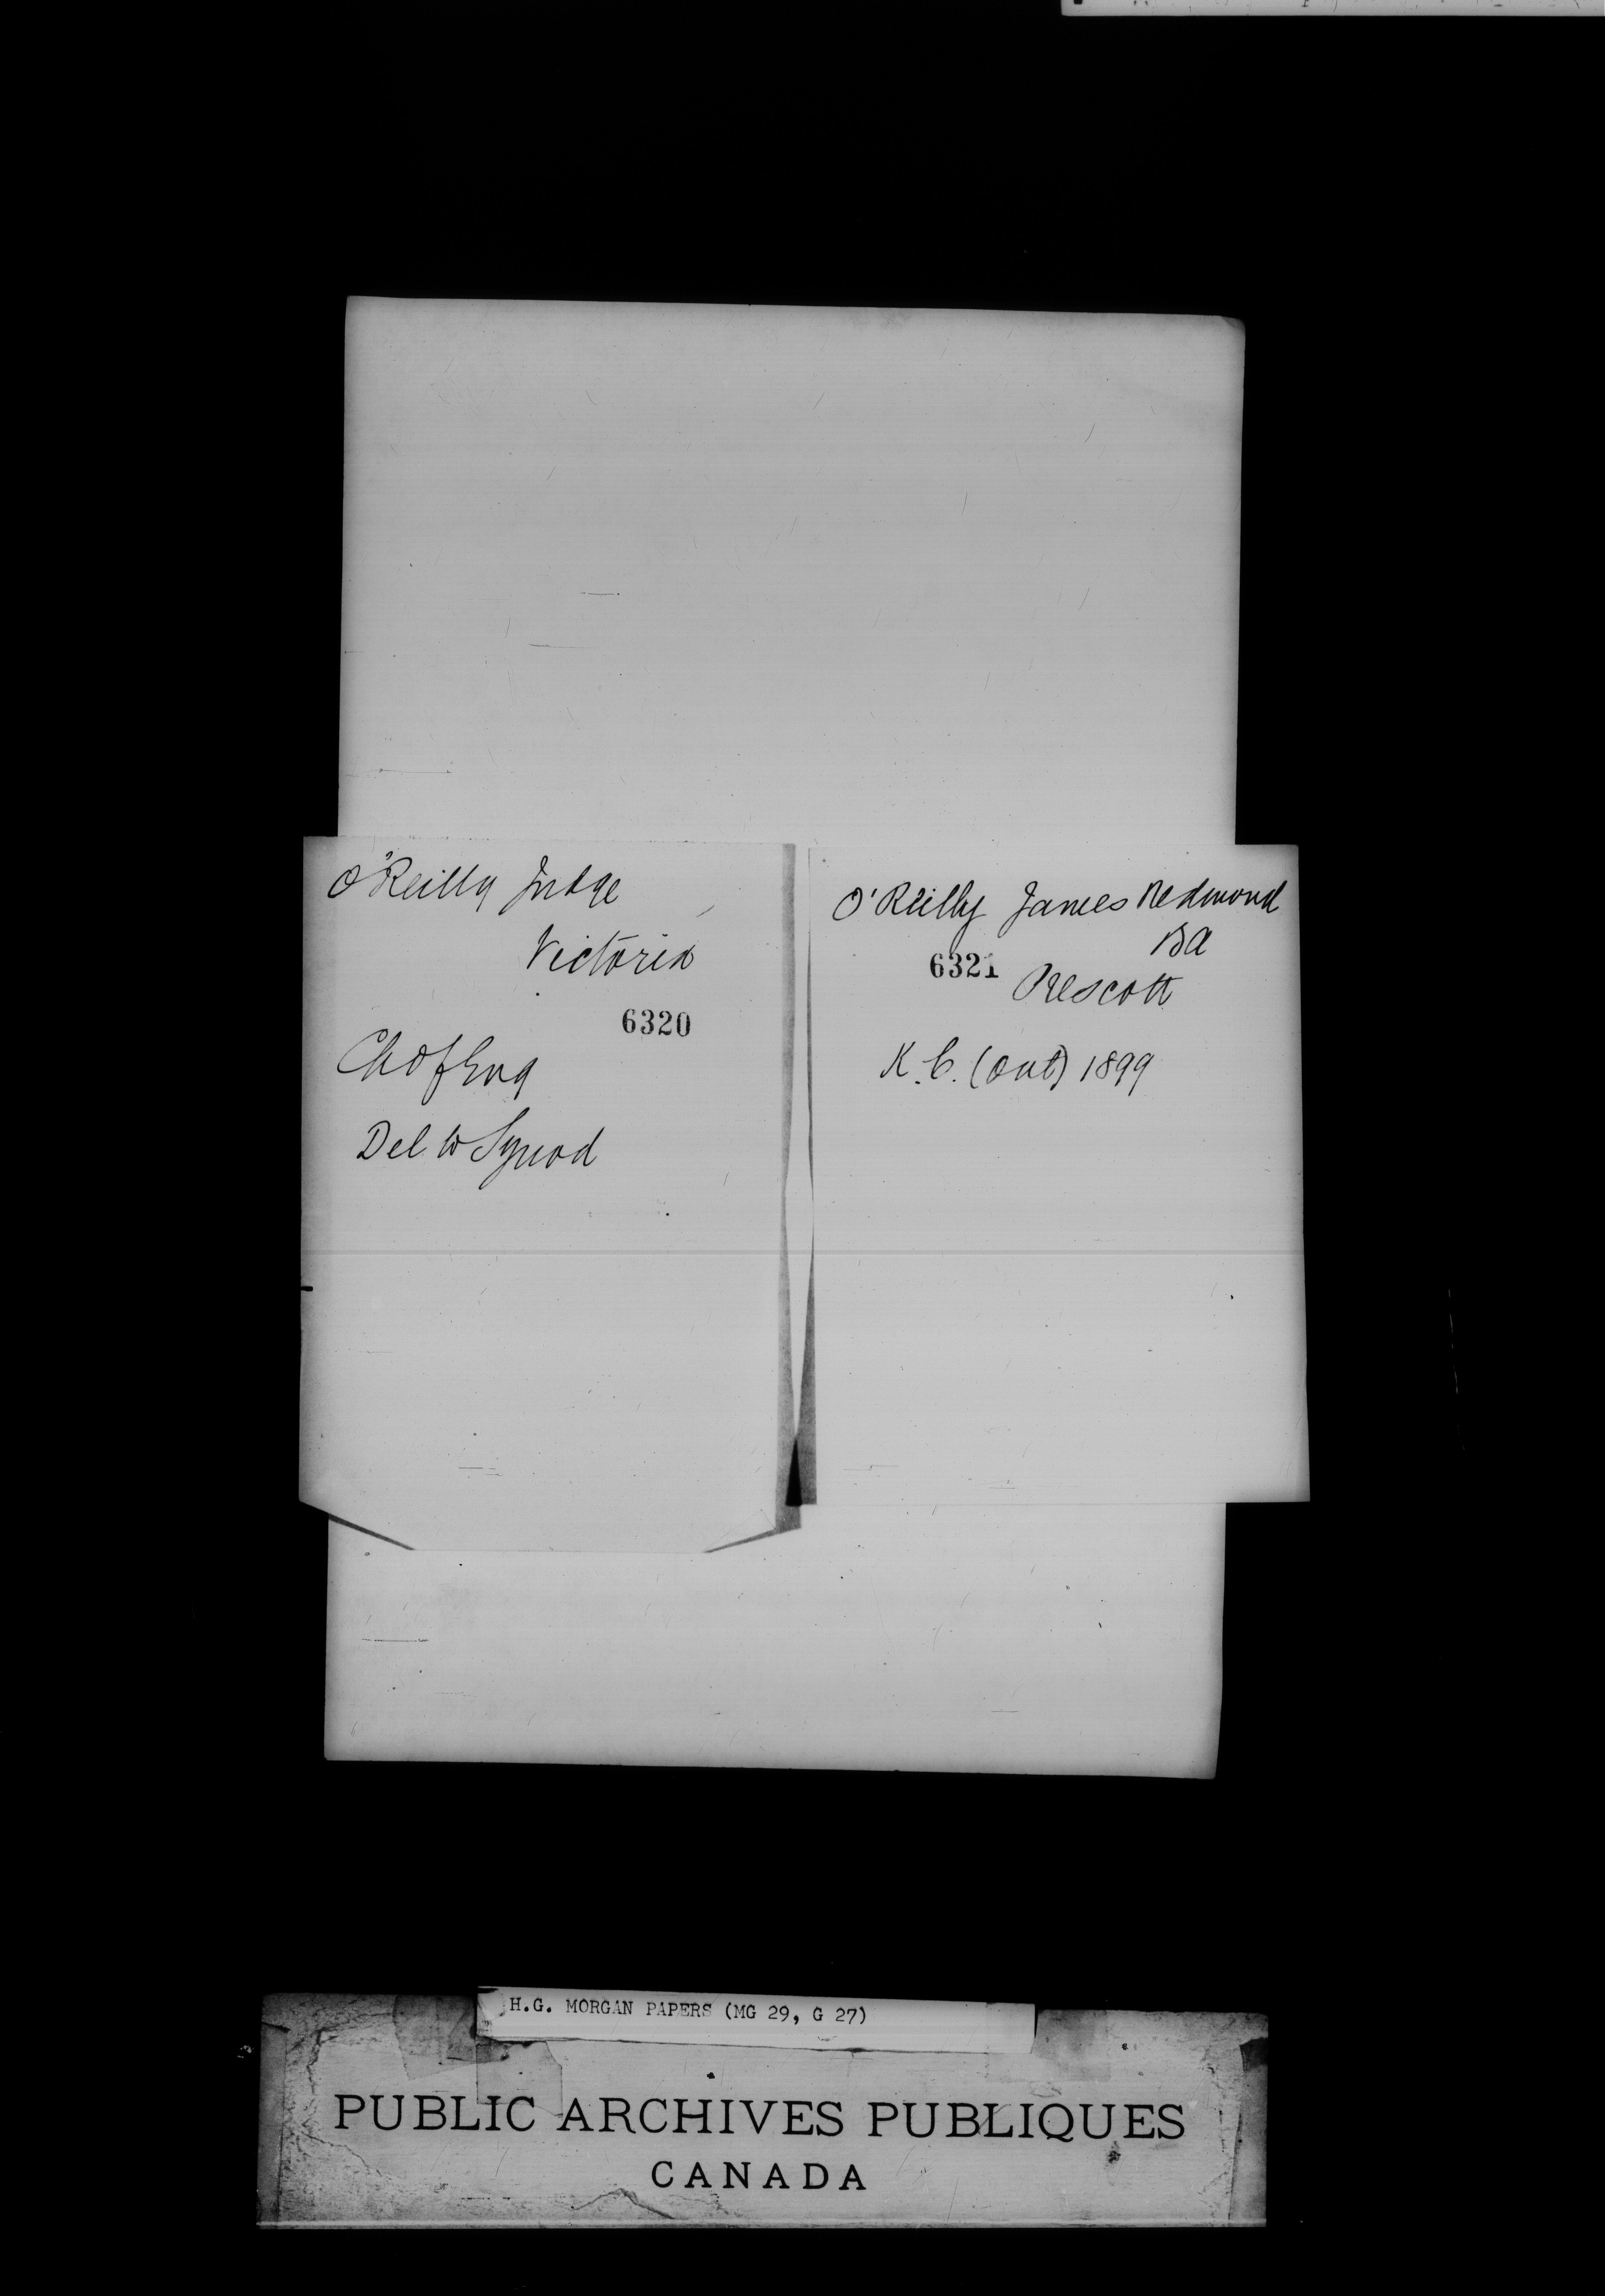 O'Reilly Judge
Victoria
6320
Ch of Eng
Del to Synod
O'Reilly James Redmond
BA
6321
Prescott
K.C. (Ont) 1899
H.G. MORGAN PAPERS (MG 29, G 27)
PUBLIC ARCHIVES PUBLIQUES
CANADA